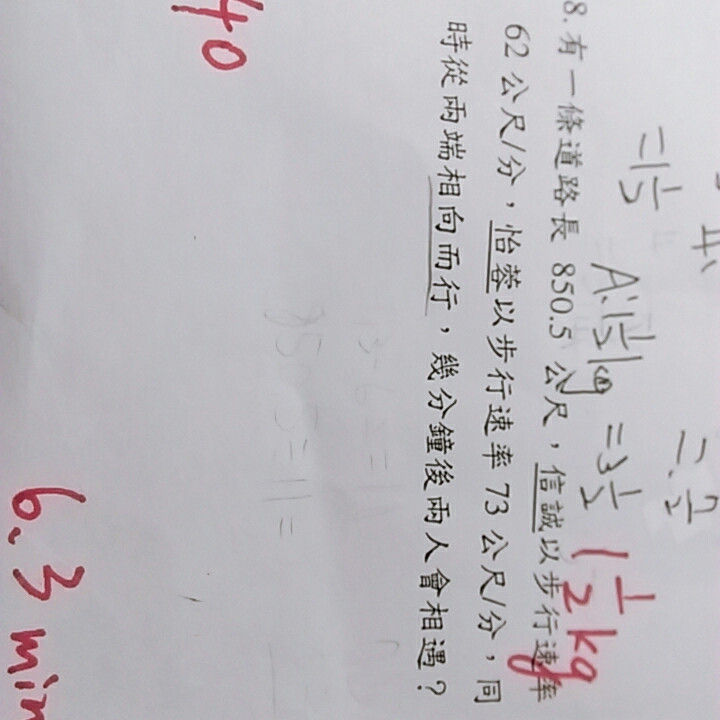 8. 有一條道路長 850.5 公尺，信誠以步行速率
62 公尺/分，怡蓉以步行速率 73 公尺/分，同
時從兩端相向而行，幾分鐘後兩人會相遇？
=1 1/5
A: 1 1/5 kg
=3 1/2
1 1/2 kg
40
6.3 min